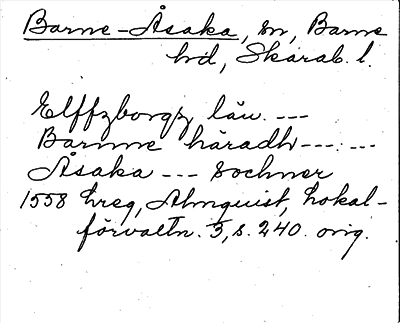 Barne-Åsaka, sn, Barne
hd, Skarab. l.
Elffzborgz län. ---
Barnne häradh --- ---
Åsaka --- Sochner
1558 hreg, Almquist, Lokal-
förvaltn. 3, s. 240. orig.